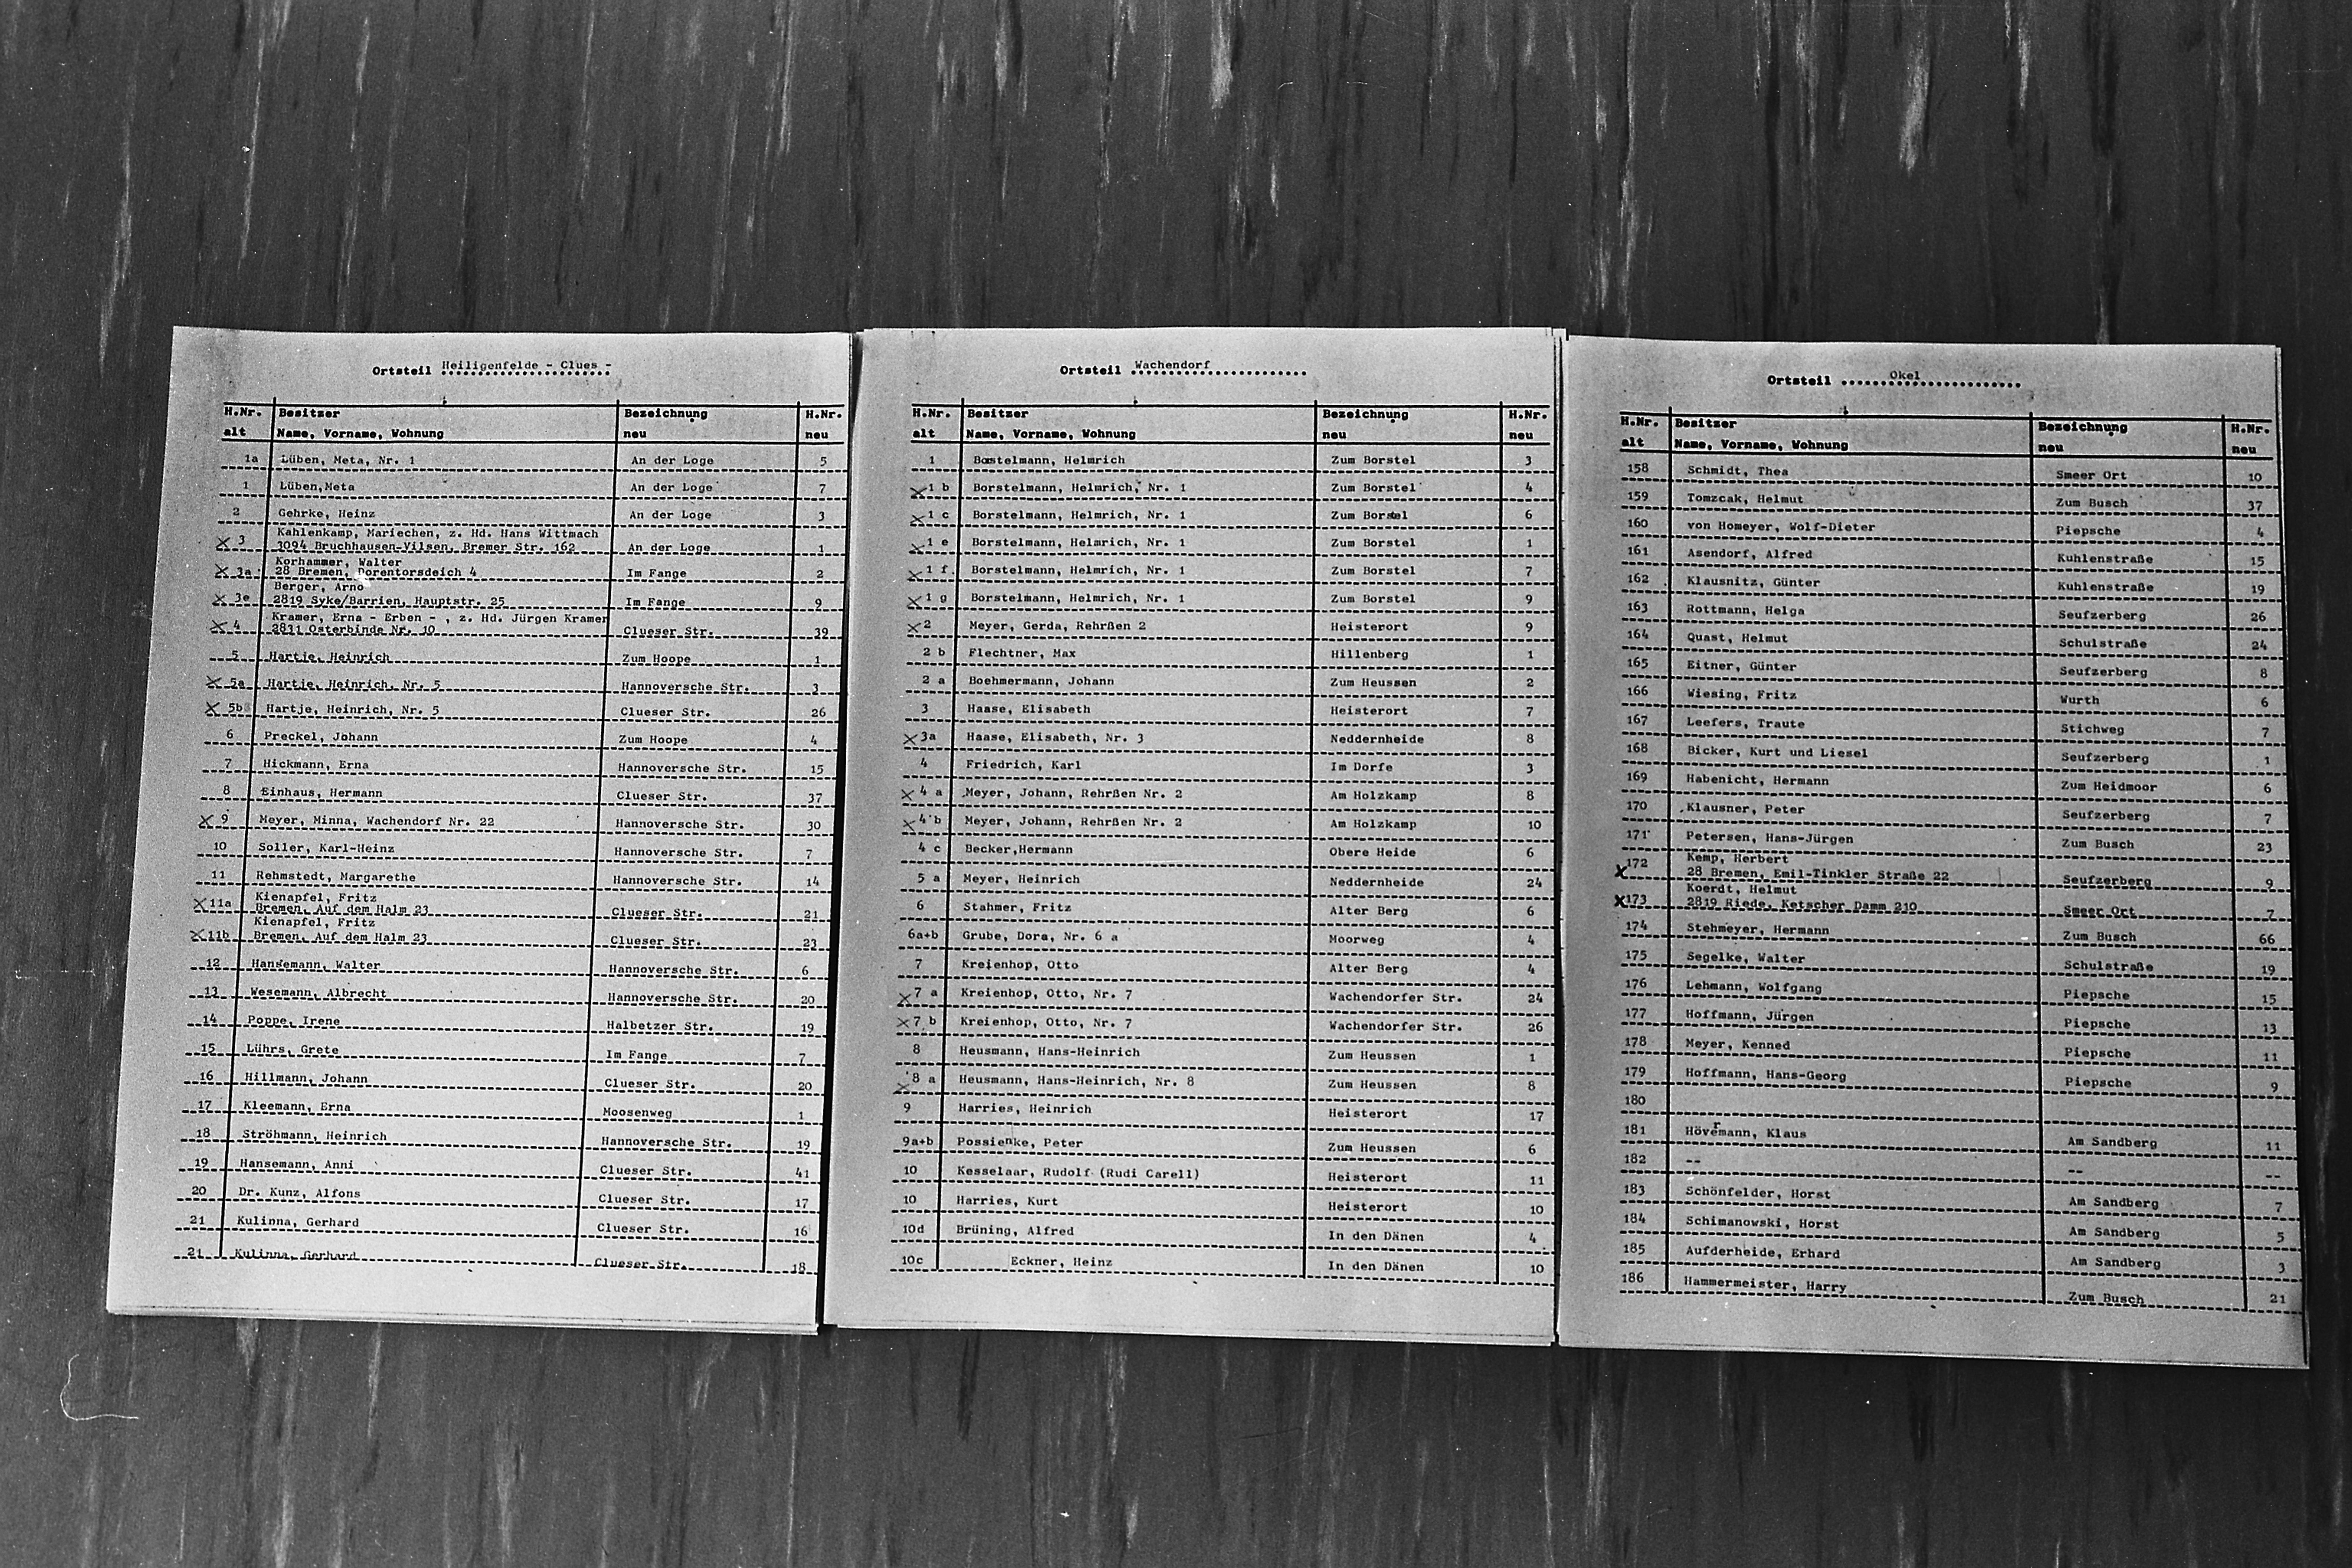 Ortsteil Heiligenfelde - Clues -
H.Nr. Besitzer Bezeichnung H.Nr.
alt Name, Vorname, Wohnung neu neu
1a Lüben, Meta, Nr. 1 An der Loge 5
1 Lüben,Meta An der Loge 7
2 Gehrke, Heinz An der Loge 3
Kahlenkamp, Mariechen, z. Hd. Hans Wittmach
X 3 3094 Bruchhausen-Vilsen, Bremer Str. 162 An der Loge 1
Korhammer, Walter
X 3a 28 Bremen, Dorentorsdeich 4 Im Fange 2
Berger, Arno
X 3e 2819 Syke/Barrien, Hauptstr. 25 Im Fange 9
Kramer, Erna - Erben - , z. Hd. Jürgen Kramer
X 4 2831 Osterbinde Nr. 10 Clueser Str. 39
5 Hartje, Heinrich Zum Hoope 1
X 5a Hartje, Heinrich, Nr. 5 Hannoversche Str. 3
X 5b Hartje, Heinrich, Nr. 5 Clueser Str. 26
6 Preckel, Johann Zum Hoope 4
7 Hickmann, Erna Hannoversche Str. 15
8 Einhaus, Hermann Clueser Str. 37
X 9 Meyer, Minna, Wachendorf Nr. 22 Hannoversche Str. 30
10 Soller, Karl-Heinz Hannoversche Str. 7
11 Rehmstedt, Margarethe Hannoversche Str. 14
Kienapfel, Fritz
X 11a Bremen, Auf dem Halm 23 Clueser Str. 21
Kienapfel, Fritz
X 11b Bremen, Auf dem Halm 23 Clueser Str. 23
12 Hansemann, Walter Hannoversche Str. 6
13 Wesemann, Albrecht Hannoversche Str. 20
14 Poppe, Irene Halbetzer Str. 19
15 Lührs, Grete Im Fange 7
16 Hillmann, Johann Clueser Str. 20
17 Kleemann, Erna Moosenweg 1
18 Ströhmann, Heinrich Hannoversche Str. 19
19 Hansemann, Anni Clueser Str. 41
20 Dr. Kunz, Alfons Clueser Str. 17
21 Kulinna, Gerhard Clueser Str. 16
21 Kulinna, Gerhard Clueser Str. 18
Ortsteil Wachendorf
H.Nr. Besitzer Bezeichnung H.Nr.
alt Name, Vorname, Wohnung neu neu
1 Bostelmann, Helmrich Zum Borstel 3
X 1 b Borstelmann, Helmrich, Nr. 1 Zum Borstel 4
X 1 c Borstelmann, Helmrich, Nr. 1 Zum Borstel 6
X 1 e Borstelmann, Helmrich, Nr. 1 Zum Borstel 1
X 1 f. Borstelmann, Helmrich, Nr. 1 Zum Borstel 7
X 1 g Borstelmann, Helmrich, Nr. 1 Zum Borstel 9
X 2 Meyer, Gerda, Rehrßen 2 Heisterort 9
2 b Flechtner, Max Hillenberg 1
2 a Boehmermann, Johann Zum Heussen 2
3 Haase, Elisabeth Heisterort 7
X 3a Haase, Elisabeth, Nr. 3 Neddernheide 8
4 Friedrich, Karl Im Dorfe 3
X 4 a Meyer, Johann, Rehrßen Nr. 2 Am Holzkamp 8
X 4 b Meyer, Johann, Rehrßen Nr. 2 Am Holzkamp 10
4 c Becker,Hermann Obere Heide 6
5 a Meyer, Heinrich Neddernheide 24
6 Stahmer, Fritz Alter Berg 6
6a+b Grube, Dora, Nr. 6 a Moorweg 4
7 Kreienhop, Otto Alter Berg 4
X 7 a Kreienhop, Otto, Nr. 7 Wachendorfer Str. 24
X 7 b Kreienhop, Otto, Nr. 7 Wachendorfer Str. 26
8 Heusmann, Hans-Heinrich Zum Heussen 1
X 8 a Heusmann, Hans-Heinrich, Nr. 8 Zum Heussen 8
9 Harries, Heinrich Heisterort 17
9a+b Possienke, Peter Zum Heussen 6
10 Kesselaar, Rudolf (Rudi Carell) Heisterort 11
10 Harries, Kurt Heisterort 10
10d Brüning, Alfred In den Dänen 4
10c Eckner, Heinz In den Dänen 10
Ortsteil Okel
H.Nr. Besitzer Bezeichnung H.Nr.
alt Name, Vorname, Wohnung neu neu
158 Schmidt, Thea Smeer Ort 10
159 Tomzcak, Helmut Zum Busch 37
160 von Homeyer, Wolf-Dieter Piepsche 4
161 Asendorf, Alfred Kuhlenstraße 15
162 Klausnitz, Günter Kuhlenstraße 19
163 Rottmann, Helga Seufzerberg 26
164 Quast, Helmut Schulstraße 24
165 Eitner, Günter Seufzerberg 8
166 Wiesing, Fritz Wurth 6
167 Leefers, Traute Stichweg 7
168 Bicker, Kurt und Liesel Seufzerberg 1
169 Habenicht, Hermann Zum Heidmoor 6
170 Klausner, Peter Seufzerberg 7
171 Petersen, Hans-Jürgen Zum Busch 23
Kemp, Herbert
X 172 28 Bremen, Emil-Tinkler Straße 22 Seufzerberg 9
Koerdt, Helmut
X 173 2819 Riede, Ketscher Damm 210 Smeer Ort 7
174 Stehmeyer, Hermann Zum Busch 66
175 Segelke, Walter Schulstraße 19
176 Lehmann, Wolfgang Piepsche 15
177 Hoffmann, Jürgen Piepsche 13
178 Meyer, Kenned Piepsche 11
179 Hoffmann, Hans-Georg Piepsche 9
180
181 Hövermann, Klaus Am Sandberg 11
182 -- -- --
183 Schönfelder, Horst Am Sandberg 7
184 Schimanowski, Horst Am Sandberg 5
185 Aufderheide, Erhard Am Sandberg 3
186 Hammermeister, Harry Zum Busch 21